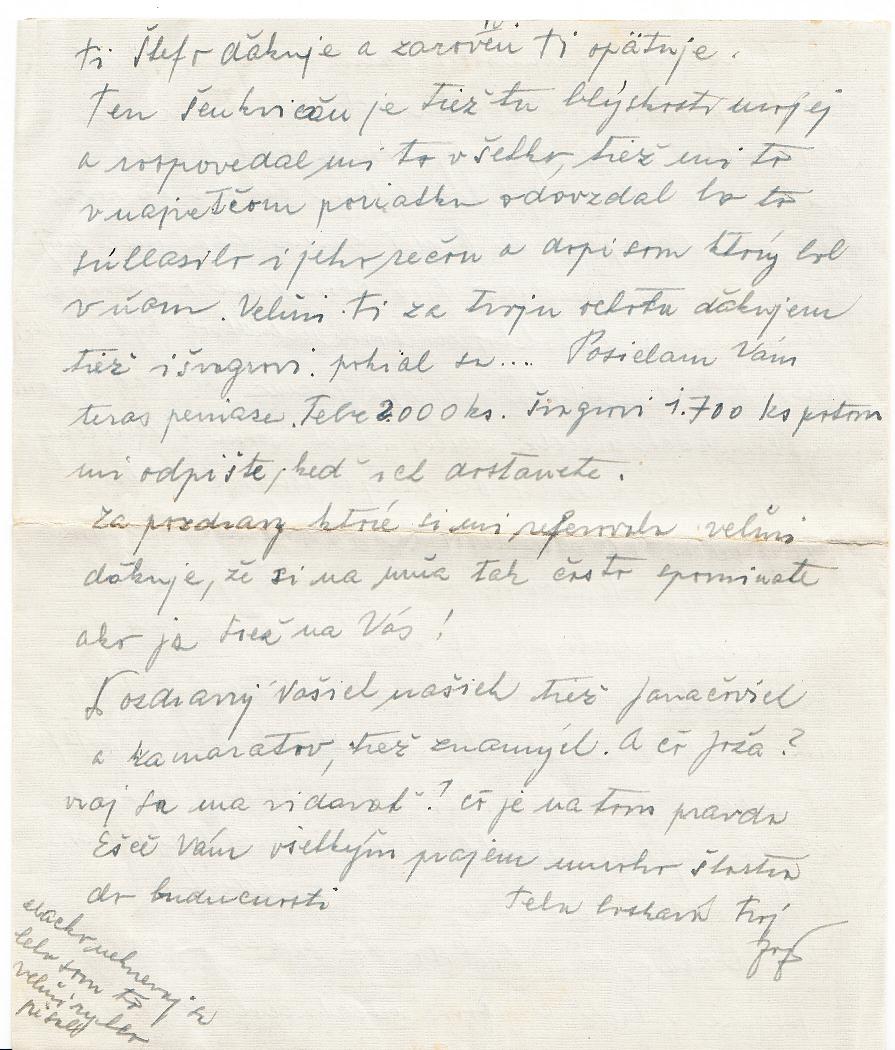 ti Štefo ďakuje a zároveň ti opätuje.
Ten Šenkvičan je tiež tu blýskosti mojej
a rospovedal mi to všetko, tiež mi to
v najvetčom poriatku odovzdal bo to
súhlasilo i jeho rečou a dopisom ktorý bol
v ňom. Velmi ti za tvoju ochotu ďakujem
tiež i švagrovi. pokial sa... Posielam Vám
teras peniaze. Tebe 2.000 ks. Švagrovi 1.700 ks potom
mi odpište, keď ich dostanete.
Za pozdravy ktoré si mi referovala velmi
ďakuje, že si na mňa tak často spominate
ako ja tiež na Vás!
Pozdravuj Vašich našich tiež Janačovich
a kamaratov, tiež znamych. A čo Joža?
vraj sa ma vidavať? čo je na tom pravda
Ešče Vám všetkým prajem mnoho štastia
do buducnosti
Teba boskáva tvoj
Jozef
nehnevaj sa
lebo som to
velmi rychlo
písal